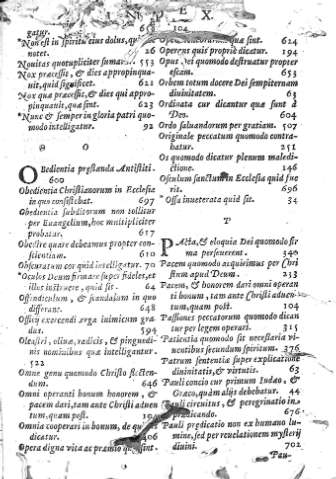 I N D E X
gatur. 658
* Non est in spiritu eius dolus, quid
notet. 26
Nouitas quotupliciter sumar. 553
Nox præcessit, & dies appropinqua-
uit, quid significet. 621
* Nox quæ præcessit, & dies qui appro-
pinquauit, quæ sint. 623
* Nunc & semper in gloria patri quo-
modo intelligatur. 92
O
OBedientia præstanda Antistiti.
600
Obedientia Christianorum in Ecclesia
in quo consistebat. 697
Obedientia subditorum non tollitur
per Euangelium, hoc multipliciter
probatur. 617
Obedire quare debeamus propter con-
scientiam. 610
Obscuratum cor quid intelligatur. 70
* Oculos Deum firmare super fideles, et
illos instruere, quid sit. 64
Offendiculum, & scandalum in quo
differant. 648
Officij exercendi erga inimicum gra-
dus. 594
Oleastri, oliuæ, radicis, & pinguedi-
nis nominibus quæ intelligantur.
522
Omne genu quomodo Christo flecten-
dum. 646
Omni operanti bonum honorem, &
pacem dari, tam ante Christi aduen
tum, quam post.
Omnia cooperari in bonum, de quibus
dicatur. 406
Opera digna vita ac præmio quæ sint.
104
quæ sint. 624
Operens quis propriè dicatur. 194
Opus Dei quomodo destruatur propter
escam. 653
Orbem totum docere Dei sempiternam
diuinitatem. 63
Ordinata cur dicantur quæ sunt à
Deo. 604
Ordo saluandorum per gratiam. 507
Originale peccatum quomodo contra-
batur. 251
Os quomodo dicatur plenum maledi-
ctione. 146
Osculum sanctum in Ecclesia quid fue
rit. 696
* Ossa inueterata quid sit. 34
P
PActa, & eloquia Dei quomodo fir
ma perseuerent. 340
Pacem quomodo acquirimus per Chri
stum apud Deum. 233
Pacem, & honorem dari omni operan
ti bonum, tam ante Christi aduen-
tum, quam post. 104
Passiones peccatorum quomodo dican
tur per legem operari. 315
Patientia quomodo sit necessaria vi-
uentibus secundum spiritum. 376
Patrum sententiæ super explicatione
diuinitatis, & virtutis. 63
Pauli concio cur primum Iudæo, &
Græco, quàm alijs debebatur. 44
Pauli circuitus, & peregrinatio in
prædicando. 676
Pauli prædicatio non ex humano lu-
mine, sed per reuelationem mysterij
diuini. 702
Pau-